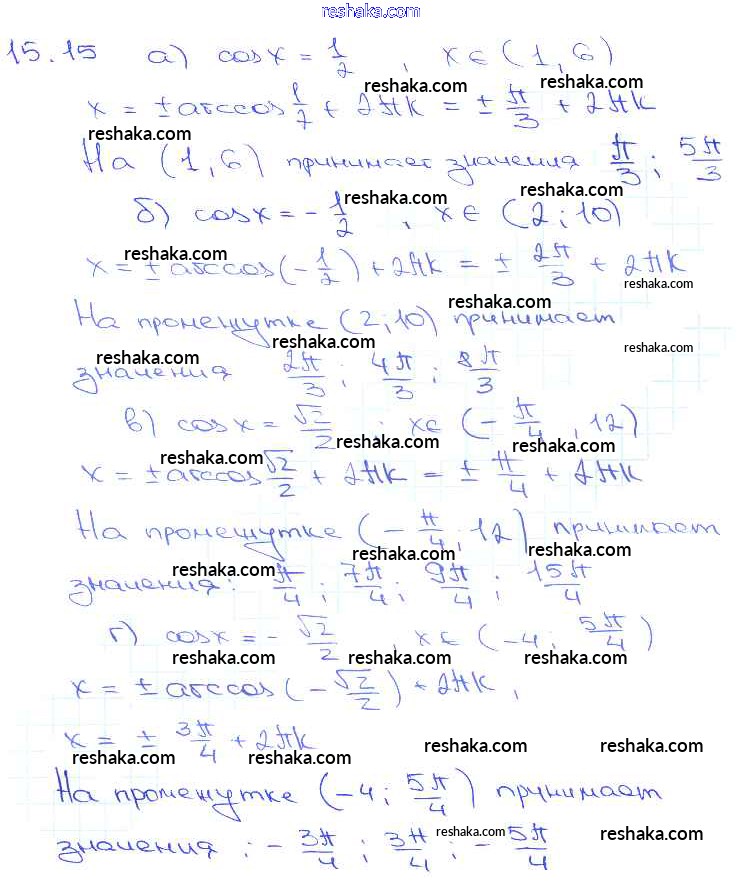 reshaka.com
15.15 а) cosx = 1/2 , x∈(1,6)
reshaka.com reshaka.com
x = ±arccos 1/2 + 2πk = ± π/3 + 2πk
reshaka.com reshaka.com
На (1,6) принимает значения π/3 ; 5π/3
reshaka.com reshaka.com
б) cosx = - 1/2 , x∈ (2;10)
reshaka.com reshaka.com
x = ± arccos(-1/2) + 2πk = ± 2π/3 + 2πk
reshaka.com
reshaka.com
На промежутке (2;10) принимает
reshaka.com reshaka.com reshaka.com
значения 2π/3 ; 4π/3 ; 8π/3
в) cosx = √2/2 ; x∈ (- π/4 , 12)
reshaka.com reshaka.com
x = ±arccos √2/2 + 2πk = ± π/4 + 2πk
reshaka.com
На промежутке (- π/4 ; 12) принимает
reshaka.com reshaka.com
reshaka.com
значения: π/4 ; 7π/4 ; 9π/4 ; 15π/4
г) cosx = - √2/2 , x∈ (-4; 5π/4)
reshaka.com reshaka.com reshaka.com
x = ± arccos(- √2/2) + 2πk,
x = ± 3π/4 + 2πk
reshaka.com reshaka.com reshaka.com
reshaka.com reshaka.com
На промежутке (-4; 5π/4) принимает
reshaka.com reshaka.com
значения : - 3π/4 ; 3π/4 ; - 5π/4